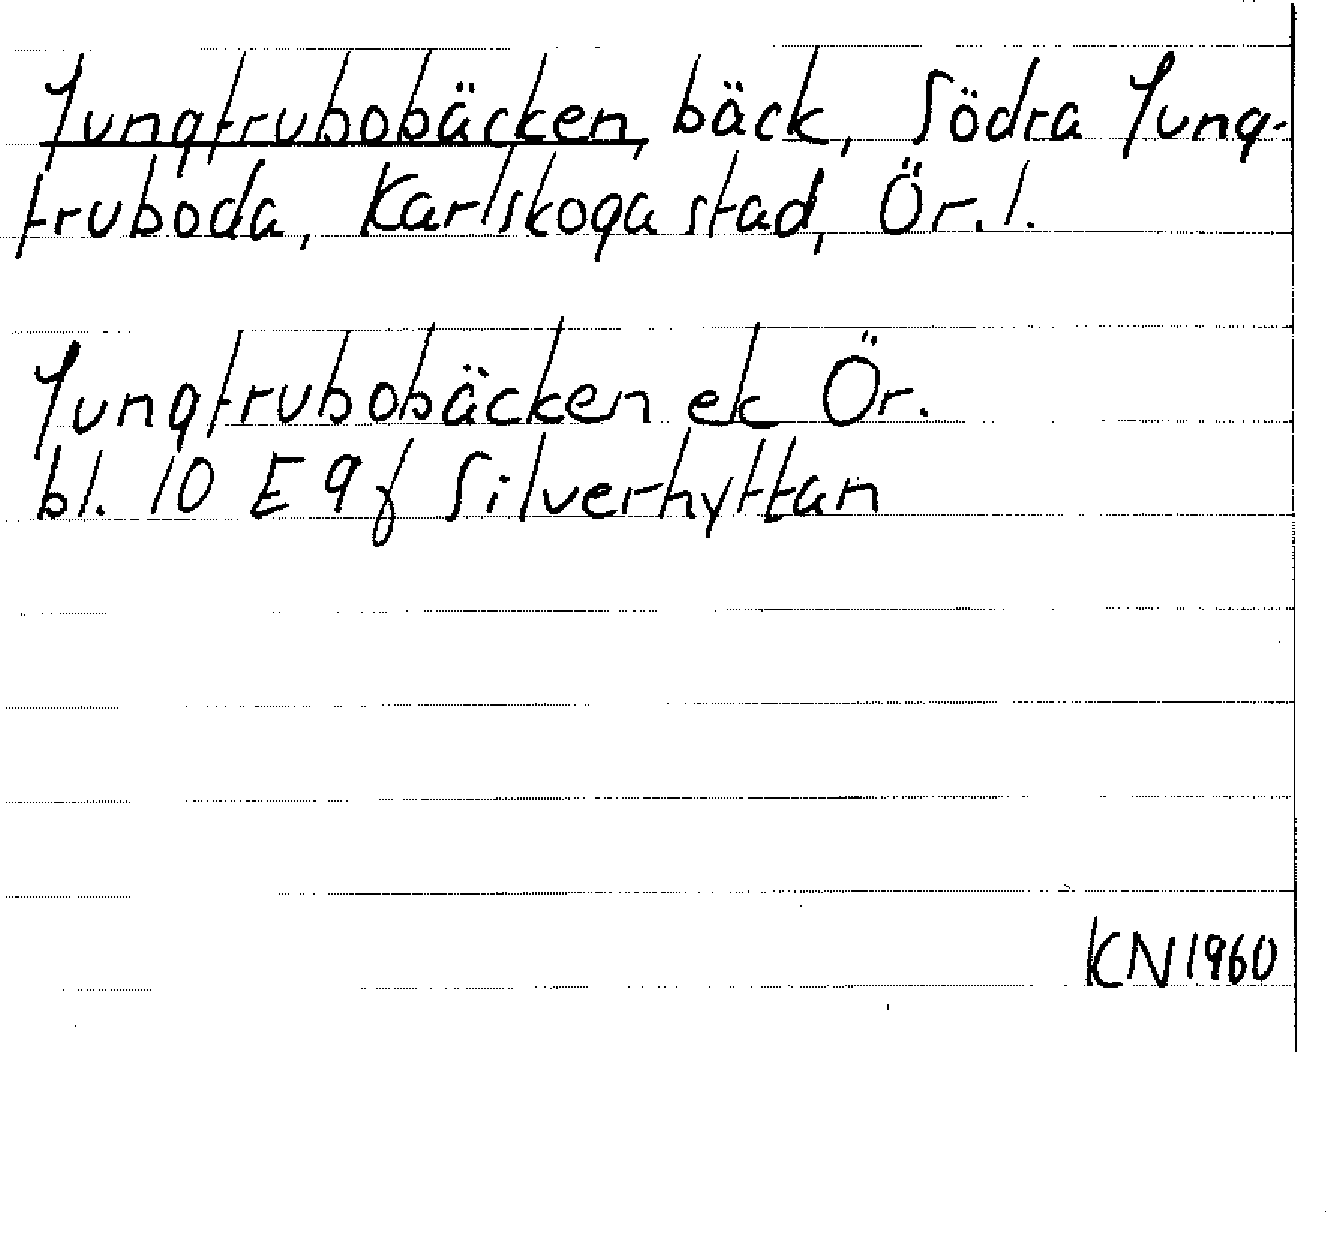 Jungfrubobäcken, bäck, Södra Jung-
fruboda, Karlskoga stad, Ör. l.
Jungfrubobäcken ek Ör.
bl. 10 E 9 f Silverhyttan
KN 1960